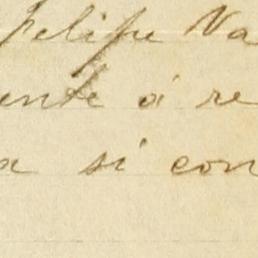 Felipe Va
ente á re
a si con